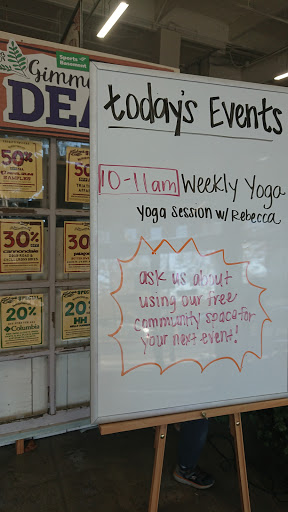 Sports
Basement
Gimme
DEA
50%
50%
30%
30%
20%
Columbia
20%
today's Events
10-11am Weekly Yoga
Yoga Session w/ Rebecca
ask us about
using our free
community space for
your next event!